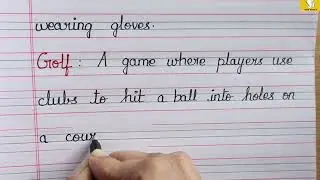 wearing gloves.
Golf : A game where players use
clubs to hit a ball into holes on
a cour